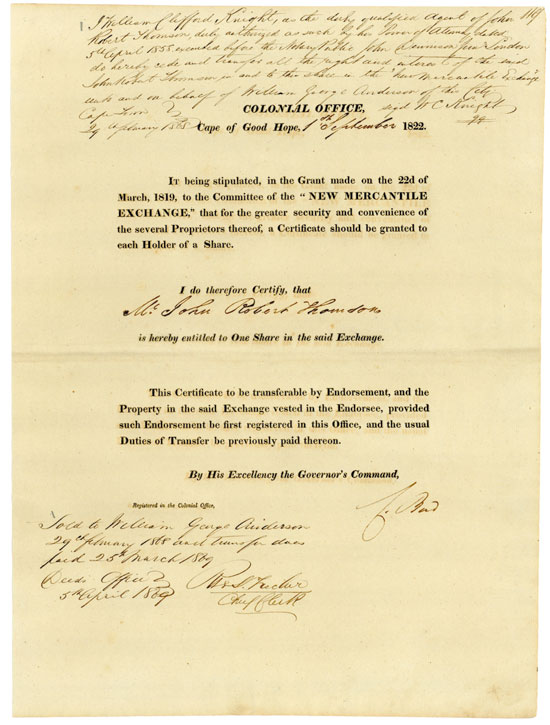 I William Clifford Knight, as the duly qualified Agent of John
Robert Thomson, duly authorized as such by his Power of Attorney dated
5th April 1855 executed before the Notary Public John London
do hereby cede and transfer all the right and interest of the said
John Robert Thomson in and to this share in the New Mercantile Exchange
unto and on behalf of William George Anderson of the City
Cape Town
29th February 1868 sigd W C Knight
COLONIAL OFFICE,
Cape of Good Hope, 1st September 1822.
IT being stipulated, in the Grant made on the 22d of
March, 1819, to the Committee of the "NEW MERCANTILE
EXCHANGE," that for the greater security and convenience of
the several Proprietors thereof, a Certificate should be granted to
each Holder of a Share.
I do therefore Certify, that
Mr. John Robert Thomson
is hereby entitled to One Share in the said Exchange.
This Certificate to be transferable by Endorsement, and the
Property in the said Exchange vested in the Endorsee, provided
such Endorsement be first registered in this Office, and the usual
Duties of Transfer be previously paid thereon.
By His Excellency the Governor's Command,
C. Bird
Registered in the Colonial Office,
Sold to William George Anderson
29th February 1868 and transfer dues
paid 25th March 1869
Deeds Office
5th April 1869
Chief Clerk